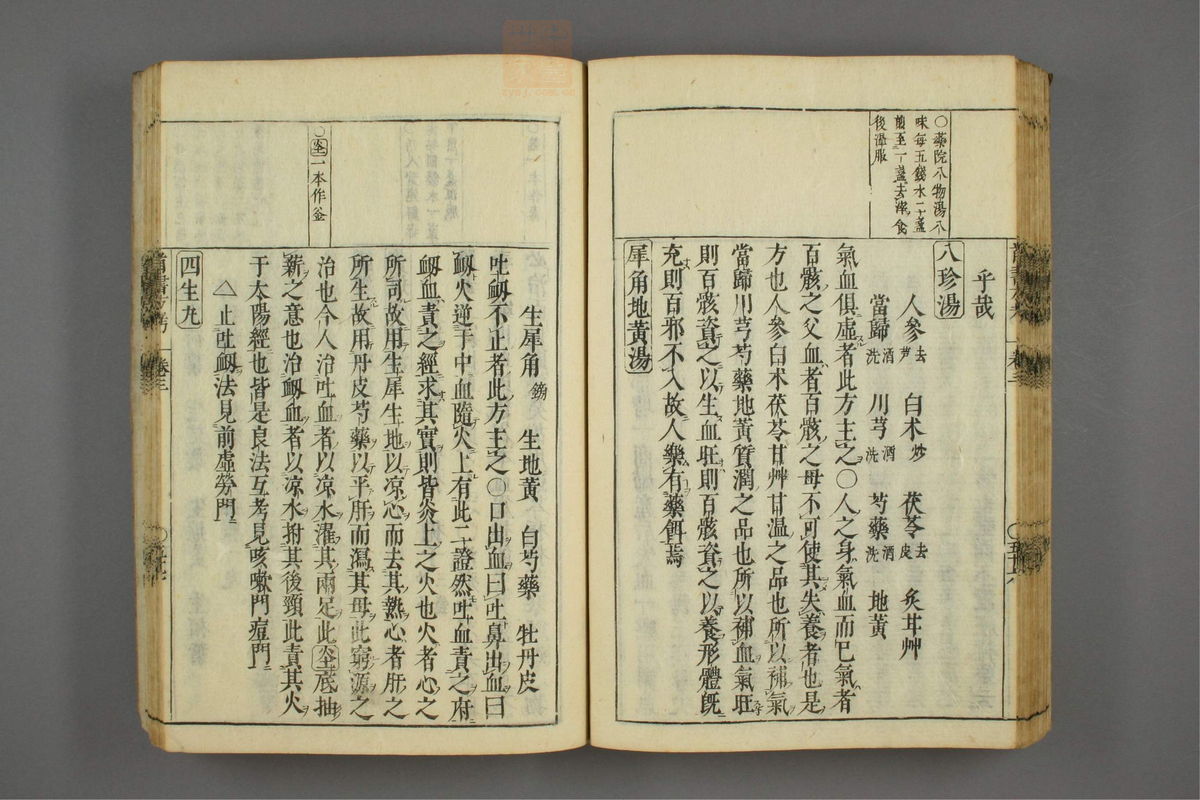 ○藥院八物湯八
味每五錢水二盞
煎至一盞去滓食
後溫服
乎哉
八珍湯
人參去芦 白朮炒 茯苓去皮 炙甘艸
當歸酒洗 川芎 芍藥酒洗 地黃
氣血俱虛者此方主之○人之身氣血而已氣者
百骸之父血者百骸之母不可使其失養者也是
方也人參白朮茯苓甘艸甘温之品也所以補氣
當歸川芎芍藥地黃質潤之品也所以補血氣旺
則百骸資之以生血旺則百骸資之以養形體既
充則百邪不入故人樂有藥餌焉
犀角地黃湯
○䥝一本作釜
生犀角鎊 生地黃 白芍藥 牡丹皮
吐衂不止者此方主之○口出血曰吐鼻出血曰
衂火逆于中血隨火上有此二證然吐血責之府
衂血責之經求其實則皆炎上之火也火者心之
所司故用生犀生地以凉心而去其熱心者肝之
所生故用丹皮芍藥以平肝而瀉其母此窮源之
治也今人治吐血者以凉水濯其兩足此底抽
薪之意也治衂血者以凉水拊其後頸此責其火
于太陽經也皆是良法互考見咳嗽門痘門
△止吐衂法見前虛勞門
四生丸
卷三
卷三